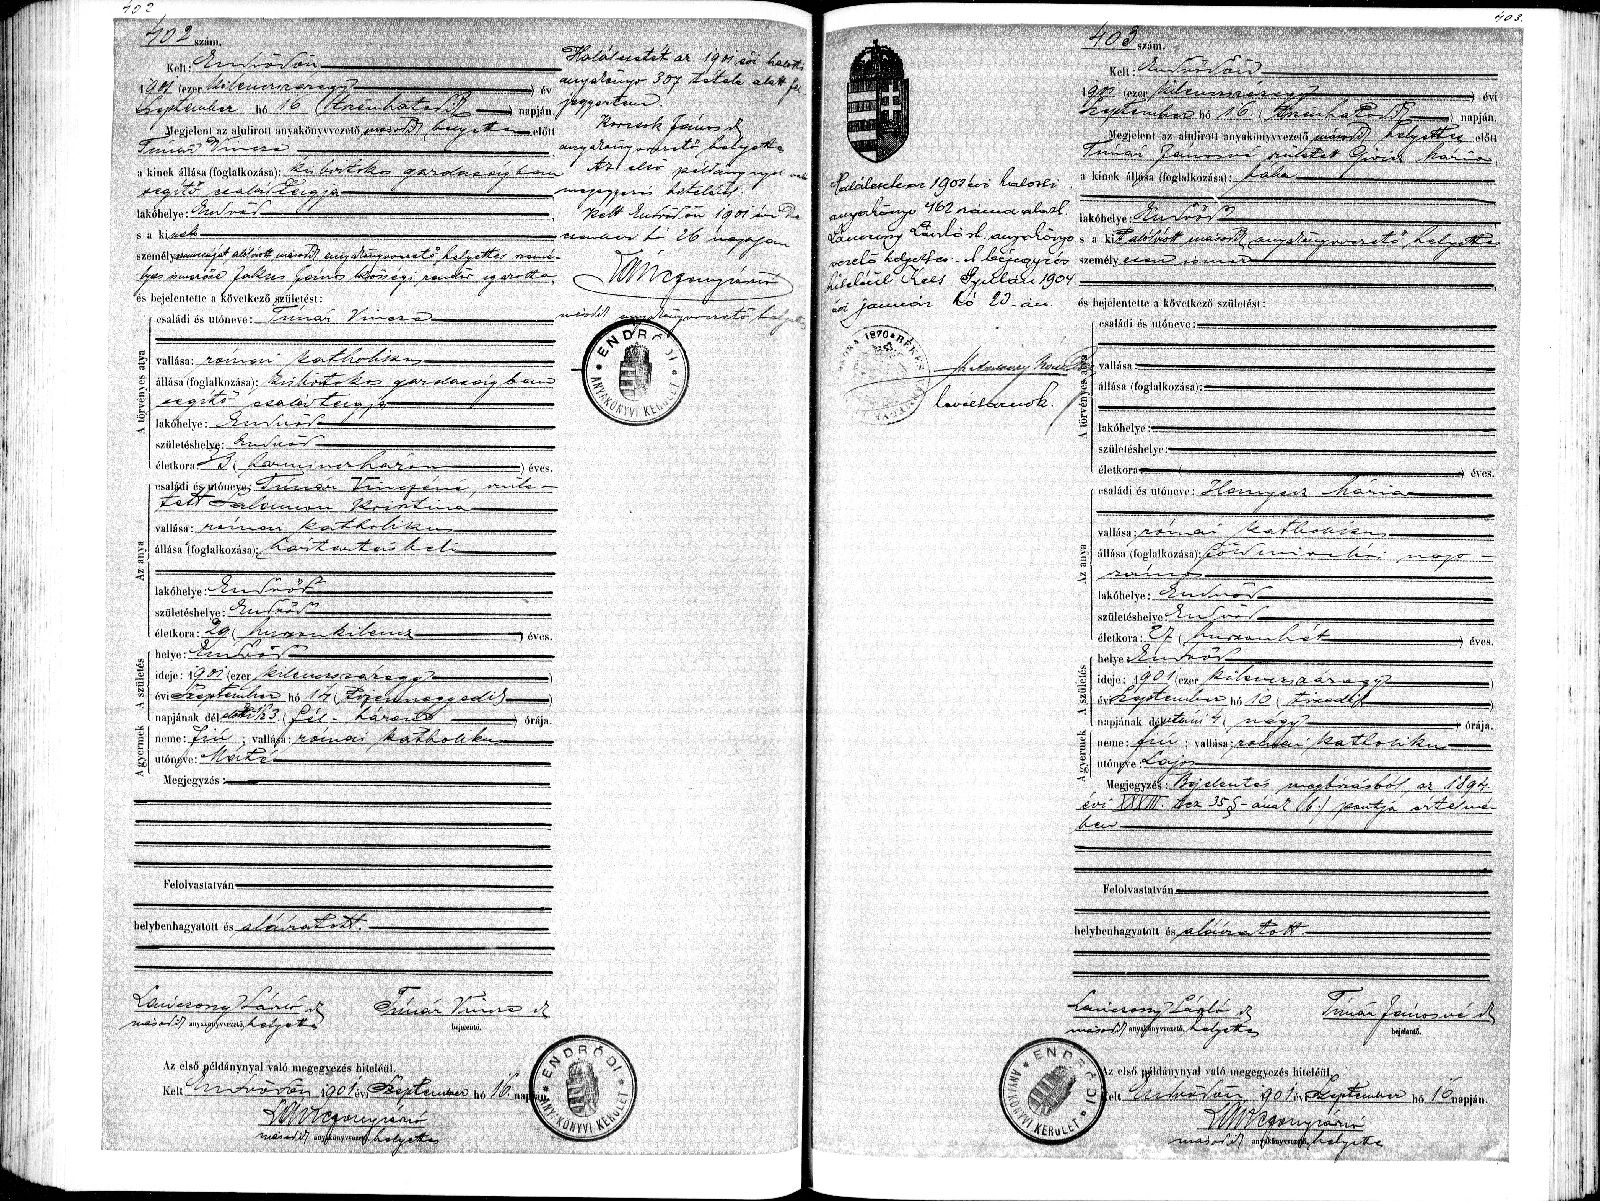 402
402 szám.
Kelt: Endrődön
1901 (ezer kilenczszázegy) év
Szeptember hó 16 (tizenhatodik) napján
Megjelent az alulirott anyakönyvvezető másodh. helyettes előtt
Tímár Vincze
a kinek állása (foglalkozása): kisbirtokos gazdaságban
segítő családtagja
lakóhelye: Endrőd
s a kinek
személyazonosságát alólirott másodh. anyakönyvvezető helyettes
János községi rendőr igazolta
és bejelentette a következő születést:
A törvényes atya
családi és utóneve: Tímár Vincze
vallása: római katholikus
állása (foglalkozása): kisbirtokos gazdaságban
segítő családtagja
lakóhelye: Endrőd
születéshelye: Endrőd
életkora: 33 (harminczhárom) éves.
Az anya
családi és utóneve: Tímár Vinczéné, szüle-
tett Salamon Krisztina
vallása: római katholikus
állása (foglalkozása): háztartásbeli
lakóhelye: Endrőd
születéshelye: Endrőd
életkora: 29 (huszonkilencz) éves.
A születés
helye: Endrőd
ideje: 1901 (ezer kilenczszázegy)
évi Szeptember hó 14 (tizennegyedik)
napjának dél előtti 1/2 3 (fél három) órája.
A gyermek
neme: fiú; vallása: római katholikus
utóneve: Máté
Megjegyzés:
Felolvastatván
helybenhagyatott és aláiratott.
Lánczony László sk
Tímár Vincze sk
másodh. anyakönyvvezető helyettes
bejelentő.
Az első példánynyal való megegyezés hiteléül.
Kelt Endrődön 1901 évi Szeptember hó 16 napján
másodh. anyakönyvvezető helyettes
ENDRŐDI
ANYAKÖNYVI KERÜLET
Halálesetét az 1901 évi halotti
anyakönyv 307 tétele alatt fel
jegyeztem.
János sk
anyakönyvvezető helyettes
Az első példánynyal való
megegyezés hiteléül
Kelt Endrődön 1901 évi De
czember hó 26 napján
másodh. anyakönyvvezető helyettes
ENDRŐDI
ANYAKÖNYVI KERÜLET
403.
403 szám.
Kelt: Endrődön
1901 (ezer kilenczszázegy) évi
Szeptember hó 16 (tizenhatodik) napján.
Megjelent az alulirott anyakönyvvezető másodh. helyettes előtt
Tímár Jánosné született Mária
a kinek állása (foglalkozása): bába
lakóhelye: Endrőd
s a kit alólirott másodh. anyakönyvvezető helyettes
személyesen ismer
és bejelentette a következő születést:
A törvényes atya
családi és utóneve:
vallása
állása (foglalkozása):
lakóhelye:
születéshelye:
életkora: éves.
Az anya
családi és utóneve: Hornyecz Mária
vallása: római katholikus
állása (foglalkozása): földmivelési nap-
számos
lakóhelye: Endrőd
születéshelye: Endrőd
életkora: 27 (huszonhét) éves.
A születés
helye: Endrőd
ideje: 1901 (ezer kilenczszázegy)
évi Szeptember hó 10 (tizedik)
napjának délutáni 4 (négy) órája.
A gyermek
neme: fiú; vallása: római katholikus
utóneve: Lajos
Megjegyzés: Bejelentés megbízásból, az 1894
évi XXXIII. tcz 35 §-ának (b.) pontja értelmé-
ben
Felolvastatván
helybenhagyatott és aláiratott.
Lánczony László sk
Tímár Jánosné sk
másodh. anyakönyvvezető helyettes
bejelentő.
Az első példánynyal való megegyezés hiteléül.
Kelt Endrődön 1901 évi Szeptember hó 16 napján.
másodh. anyakönyvvezető helyettes
ENDRŐDI
ANYAKÖNYVI KERÜLET
Haláleset az 1901 évi halotti
anyakönyv 462 száma alatt.
Lánczony László sk. anyakönyv
vezető helyettes. A bejegyzés
hiteléül Kelt Gyulán 1904
évi január hó 20-án.
levéltárnok.
1870 BÉKÉS